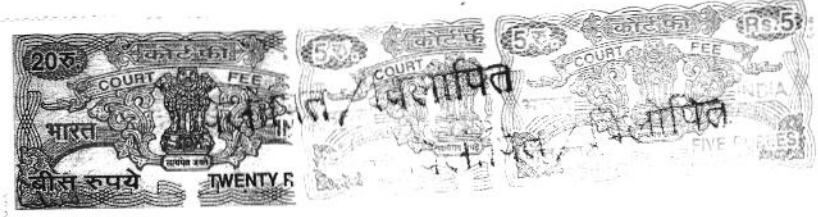 20रु. कोर्ट फी
COURT FEE
भारत
सत्यमेव जयते
बीस रुपये TWENTY R
5रु. कोर्ट फी
COURT
/ विलोपित
5रु. कोर्ट फी Rs.5
COURT FEE
INDIA
FIVE RUPEES